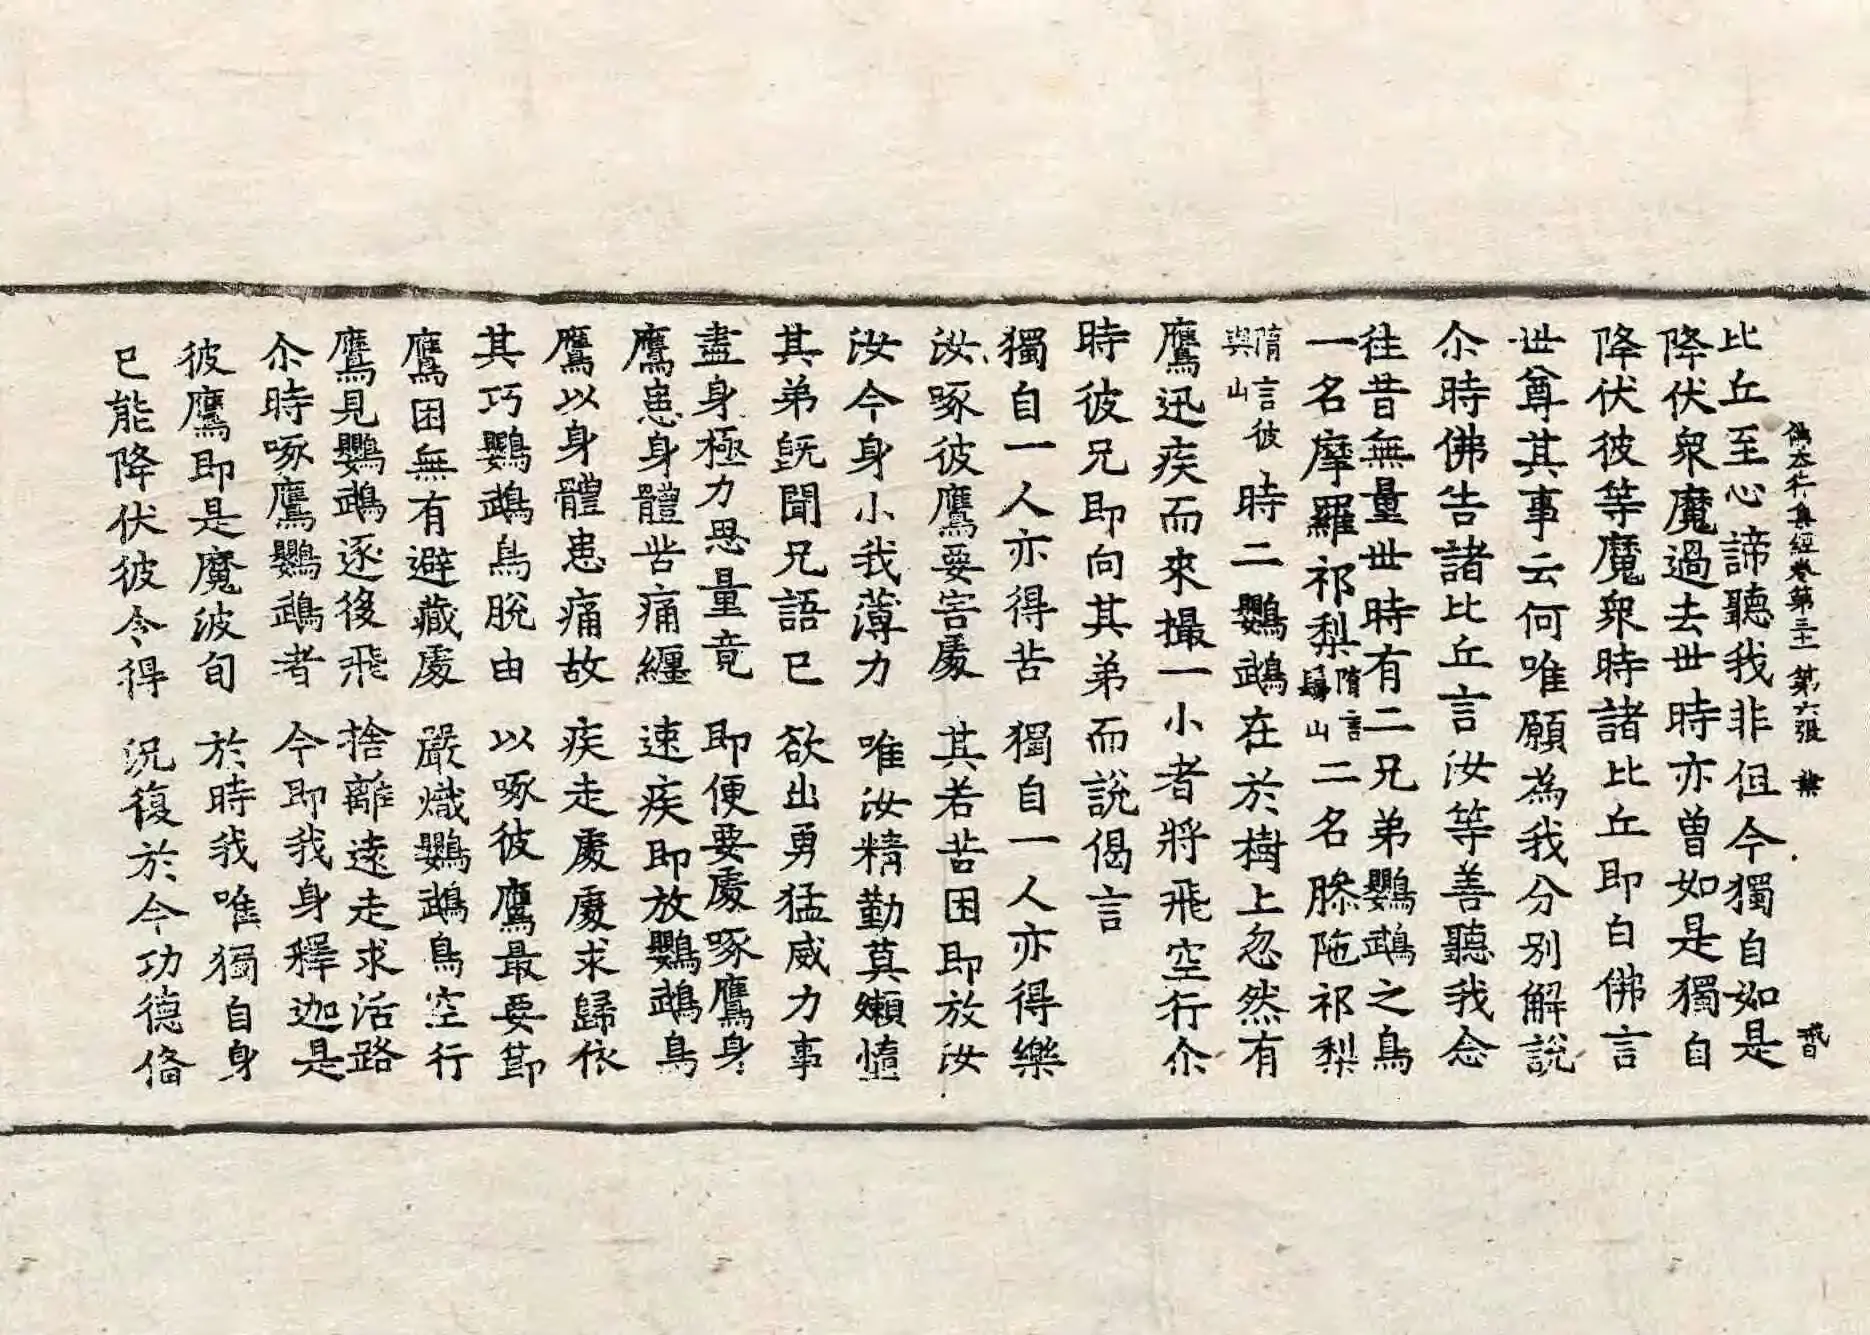 佛本行集經卷第三十一 第六張
比丘至心諦聽我非但今獨自如是
降伏衆魔過去世時亦曾如是獨自
降伏彼等魔衆時諸比丘即白佛言
世尊其事云何唯願為我分別解說
尒時佛告諸比丘言汝等善聽我念
往昔無量世時有二兄弟鸚鵡之鳥
一名摩羅祁梨隋言鬘山二名䏶陁祁梨
隋言彼與山時二鸚鵡在於樹上忽然有
鷹迅疾而來撮一小者將飛空行尒
時彼兄即向其弟而說偈言
獨自一人亦得苦 獨自一人亦得樂
汝啄彼鷹要害處 其若苦困即放汝
汝今身小我薄力 唯汝精勤莫嬾憧
其弟既聞兄語已 欲出勇猛威力事
盡身極力思量竟 即便要處啄鷹身
鷹患身體苦痛纏 速疾即放鸚鵡鳥
鷹以身體患痛故 疾走處處求歸依
其巧鸚鵡鳥脫由 以啄彼鷹最要節
鷹困無有避藏處 嚴熾鸚鵡鳥空行
鷹見鸚鵡逐後飛 捨離遠走求活路
尒時啄鷹鸚鵡者 今即我身釋迦是
彼鷹即是魔波旬 於時我唯獨自身
已能降伏彼令得 況復於今功德俻